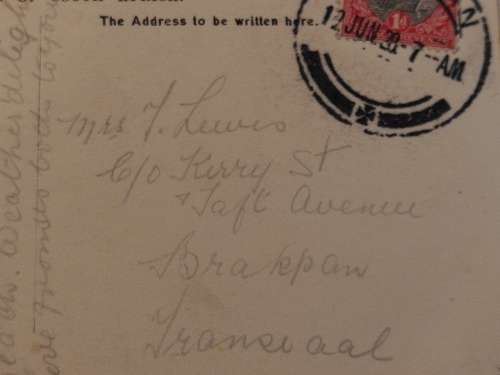 The Address to be written here.
1d
12 JUN 28-7-AM
Mrs J. Lewis
C/o Kerry St
& Taft Avenue
Brakpan
Transvaal
Weather
promises
to you